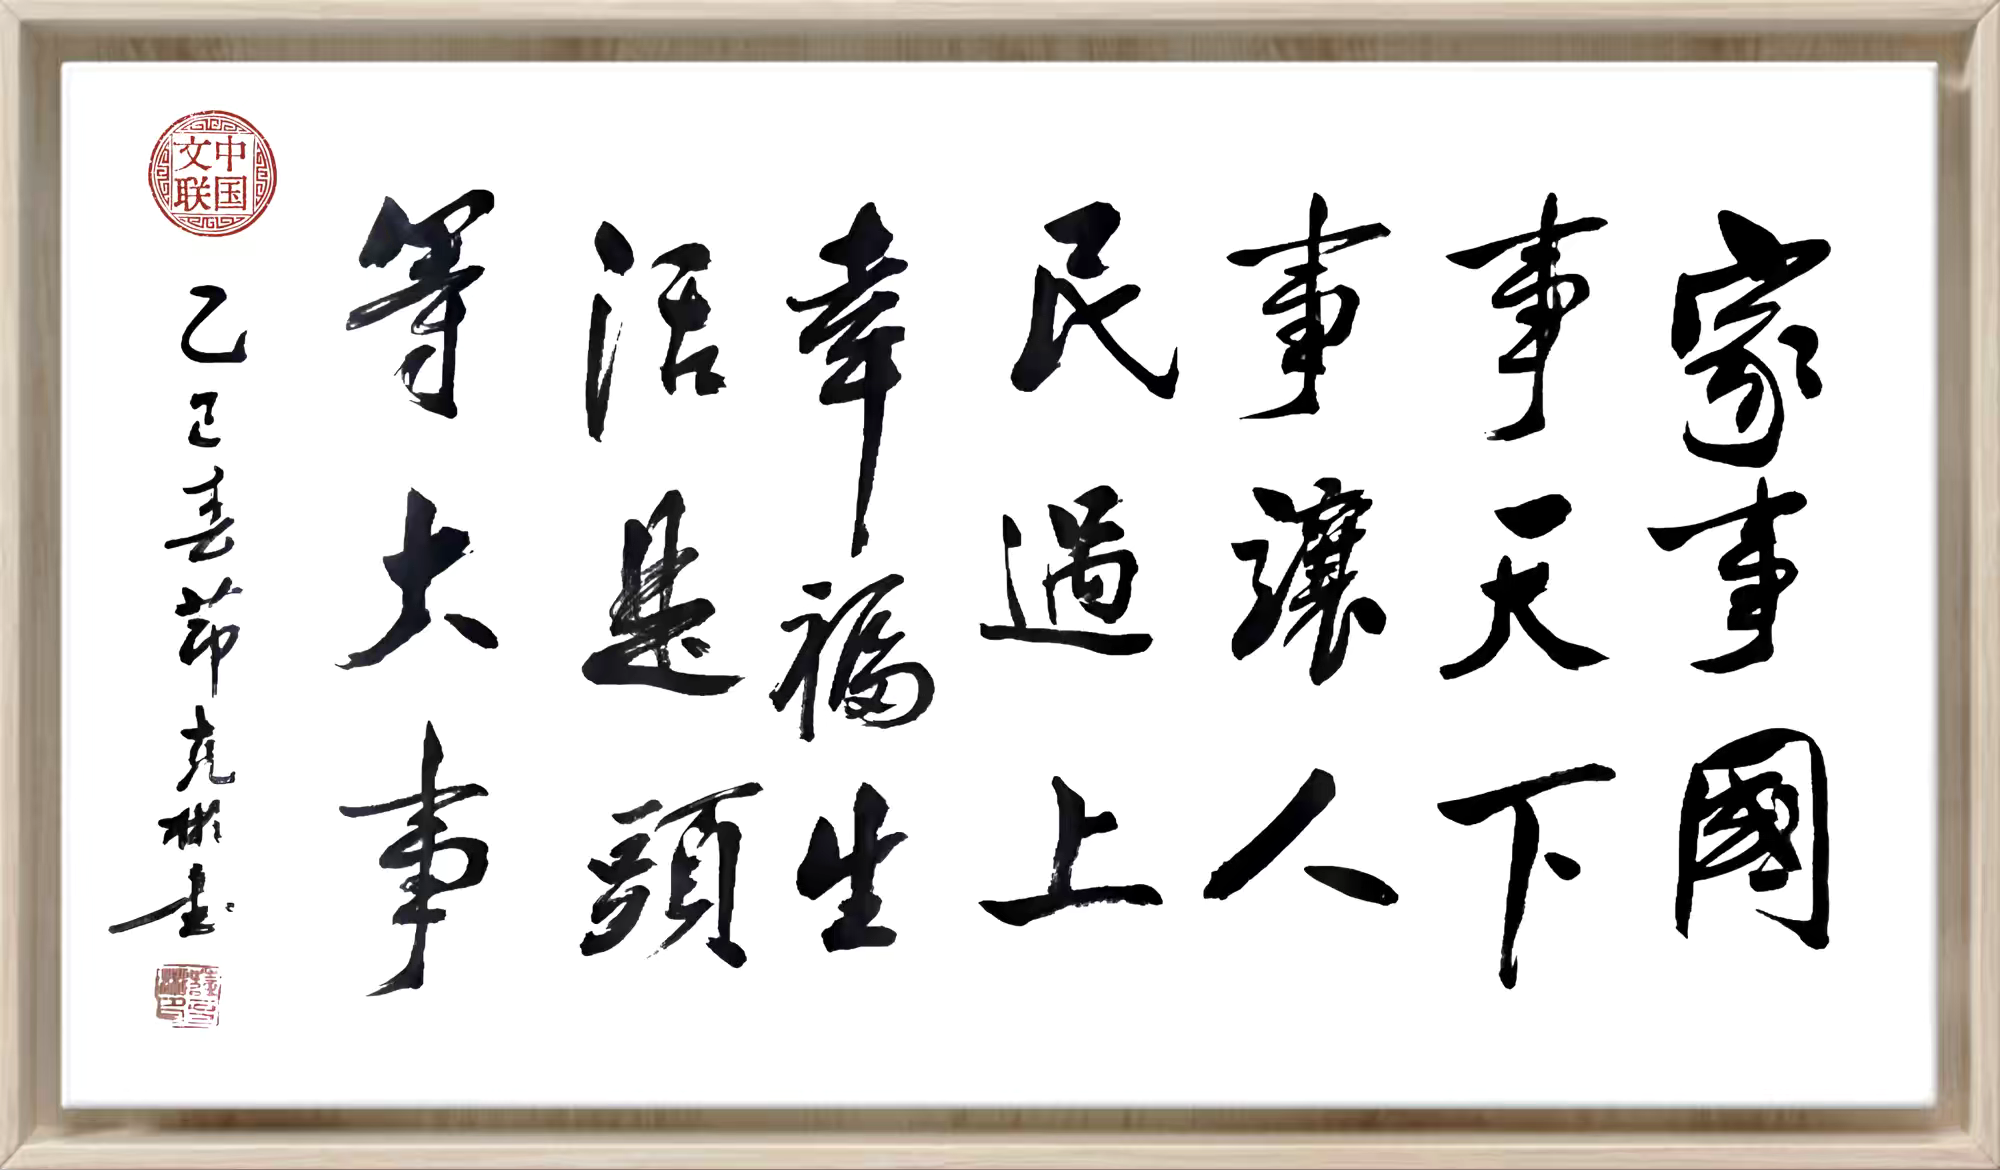 家事國
事天下
事讓人
民過上
幸福生
活是頭
等大事
乙巳春茆克彬書
中国
文联